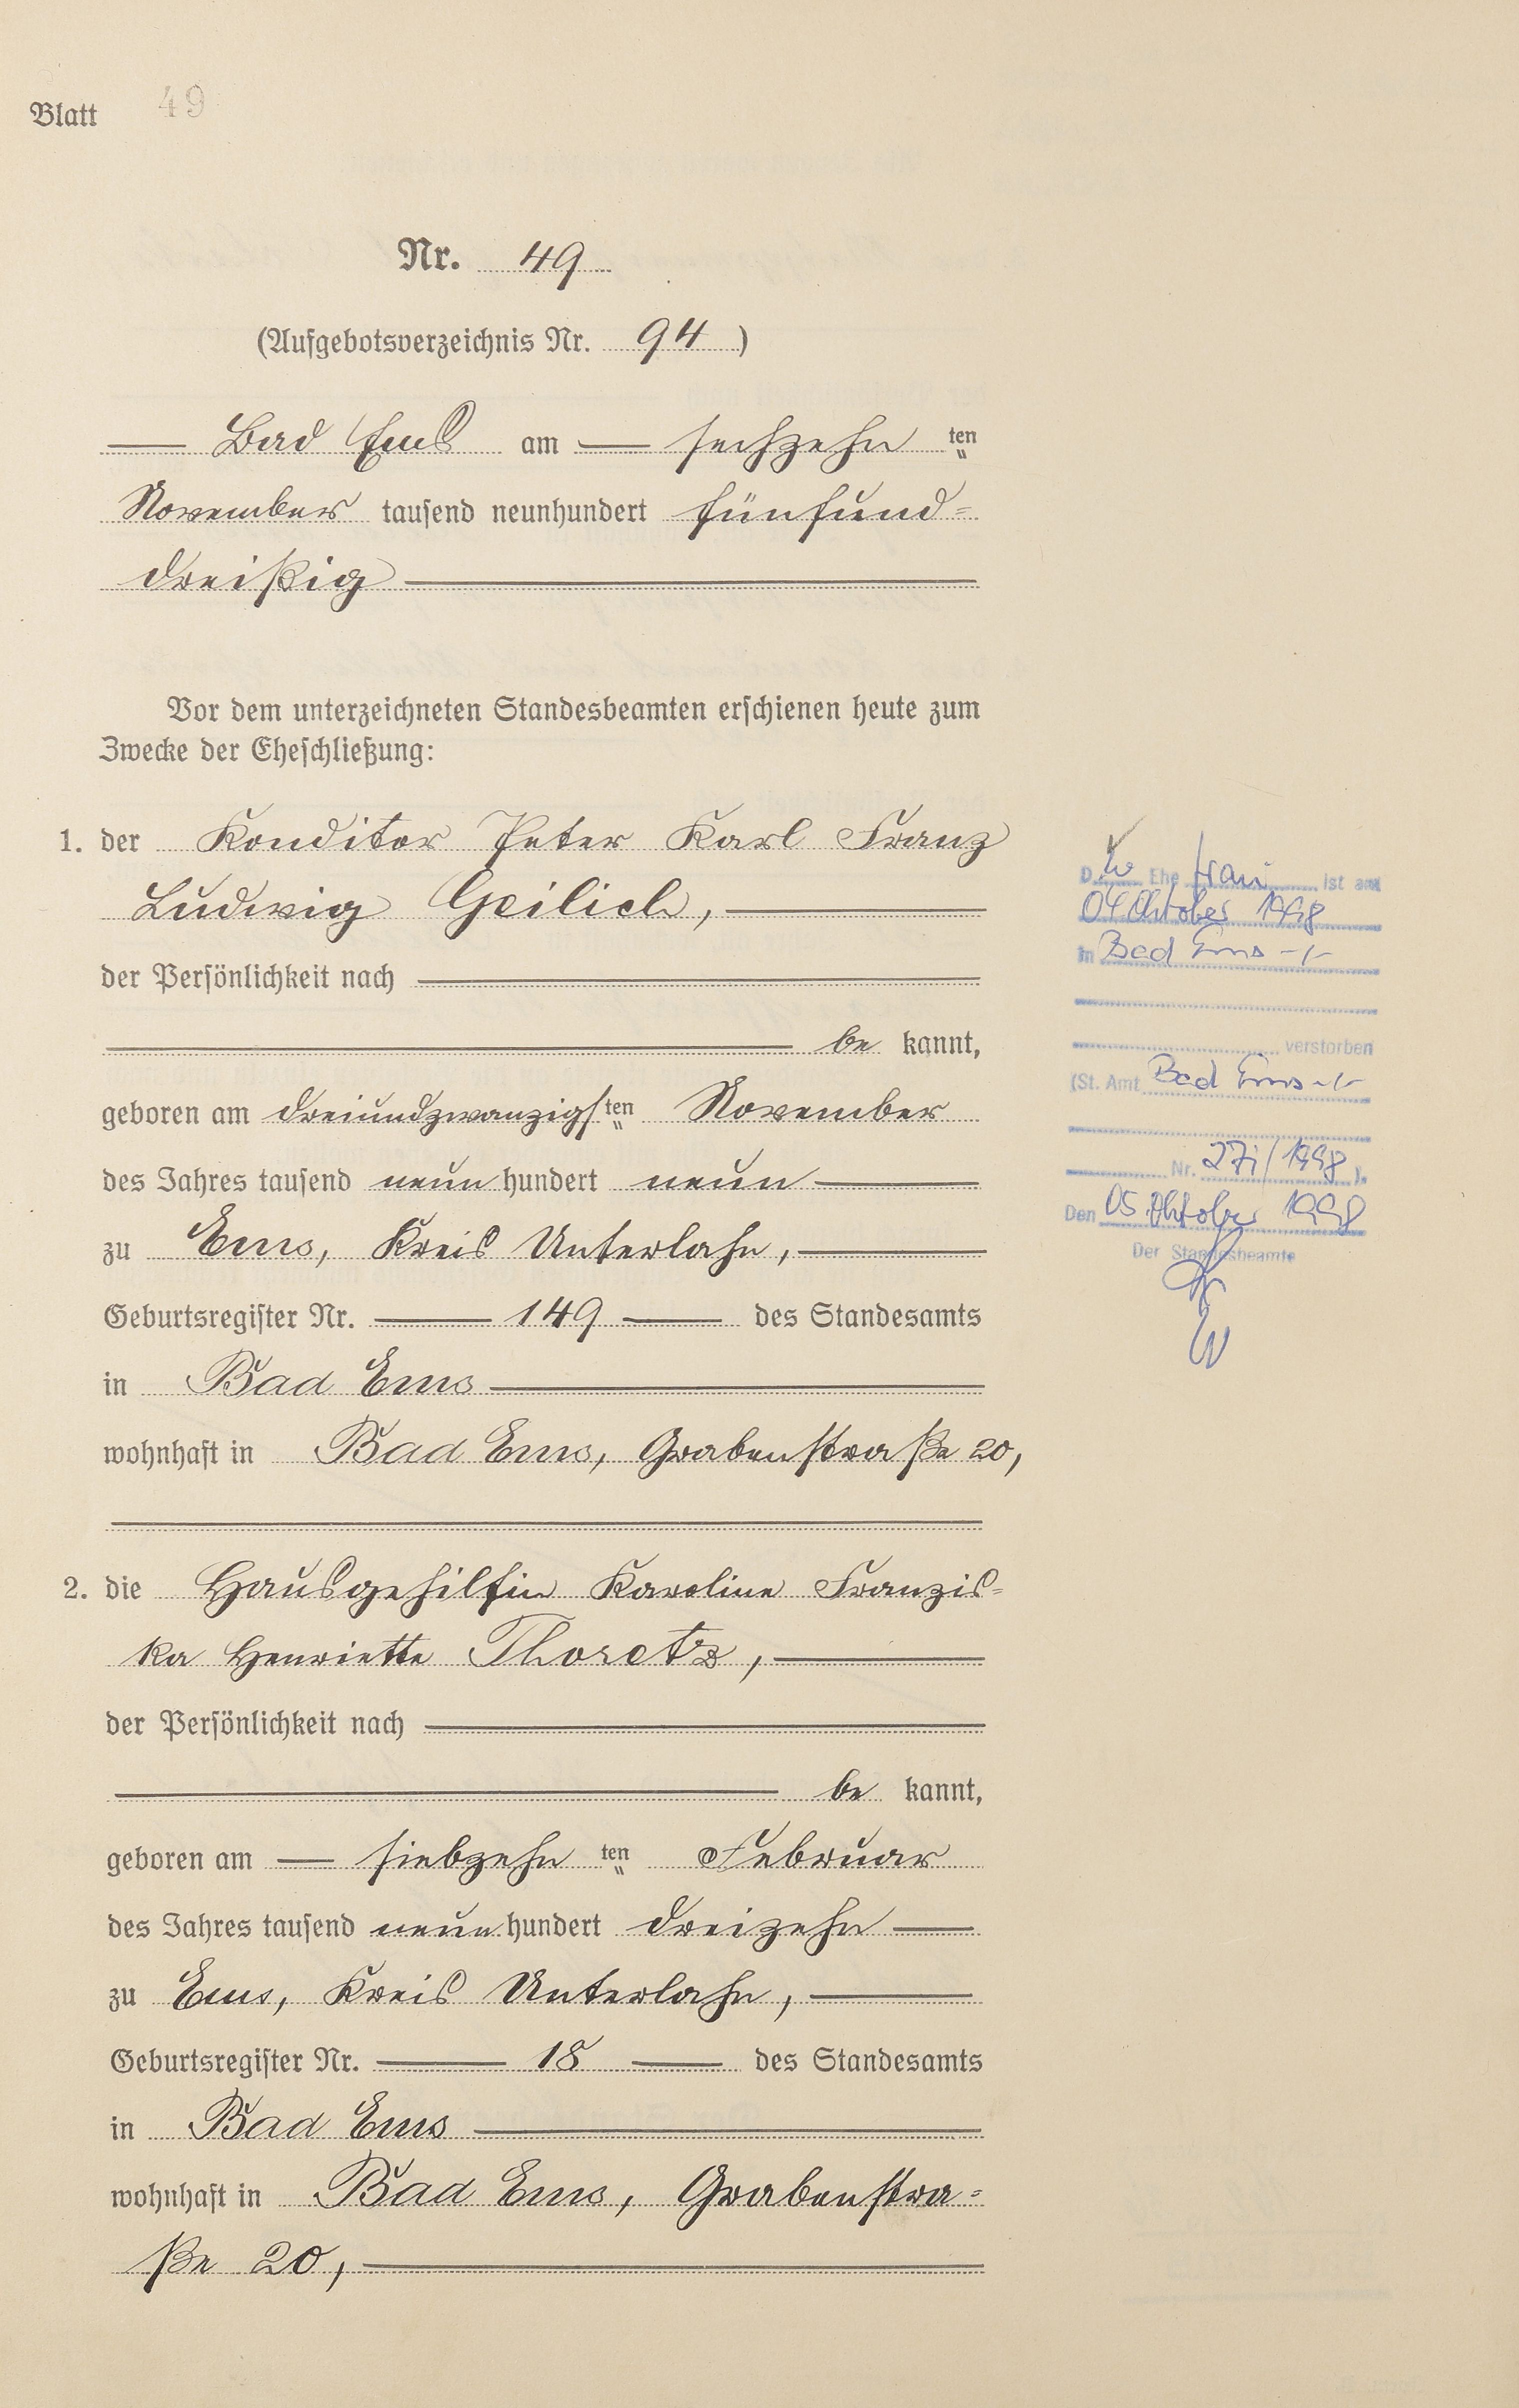 Blatt 49
Nr. 49
(Aufgebotsverzeichnis Nr. 94)
Bad Ems am sechzehn ten
November tausend neunhundert fünfund=
dreißig
Vor dem unterzeichneten Standesbeamten erschienen heute zum
Zwecke der Eheschließung:
1. der Konditor Peter Karl Franz
Ludwig Geilich,
der Persönlichkeit nach
be kannt,
geboren am dreiundzwanzigsten November
des Jahres tausend neun hundert neun
zu Ems, Kreis Unterlahn,
Geburtsregister Nr. 149 des Standesamts
in Bad Ems
wohnhaft in Bad Ems, Grabenstraße 20,
2. die Hausgehilfin Karoline Franzis=
ka Henriette Thoretz,
der Persönlichkeit nach
be kannt,
geboren am siebzehn ten Februar
des Jahres tausend neun hundert dreizehn
zu Ems, Kreis Unterlahn,
Geburtsregister Nr. 18 des Standesamts
in Bad Ems
wohnhaft in Bad Ems, Grabenstra=
ße 20,
D Ehe frau ist am
04 Oktober 1998
in Bad Ems -/-
verstorben
(St. Amt Bad Ems -/-
Nr. 271/1998 ).
Den 05. Oktober 1998
Der Standesbeamte